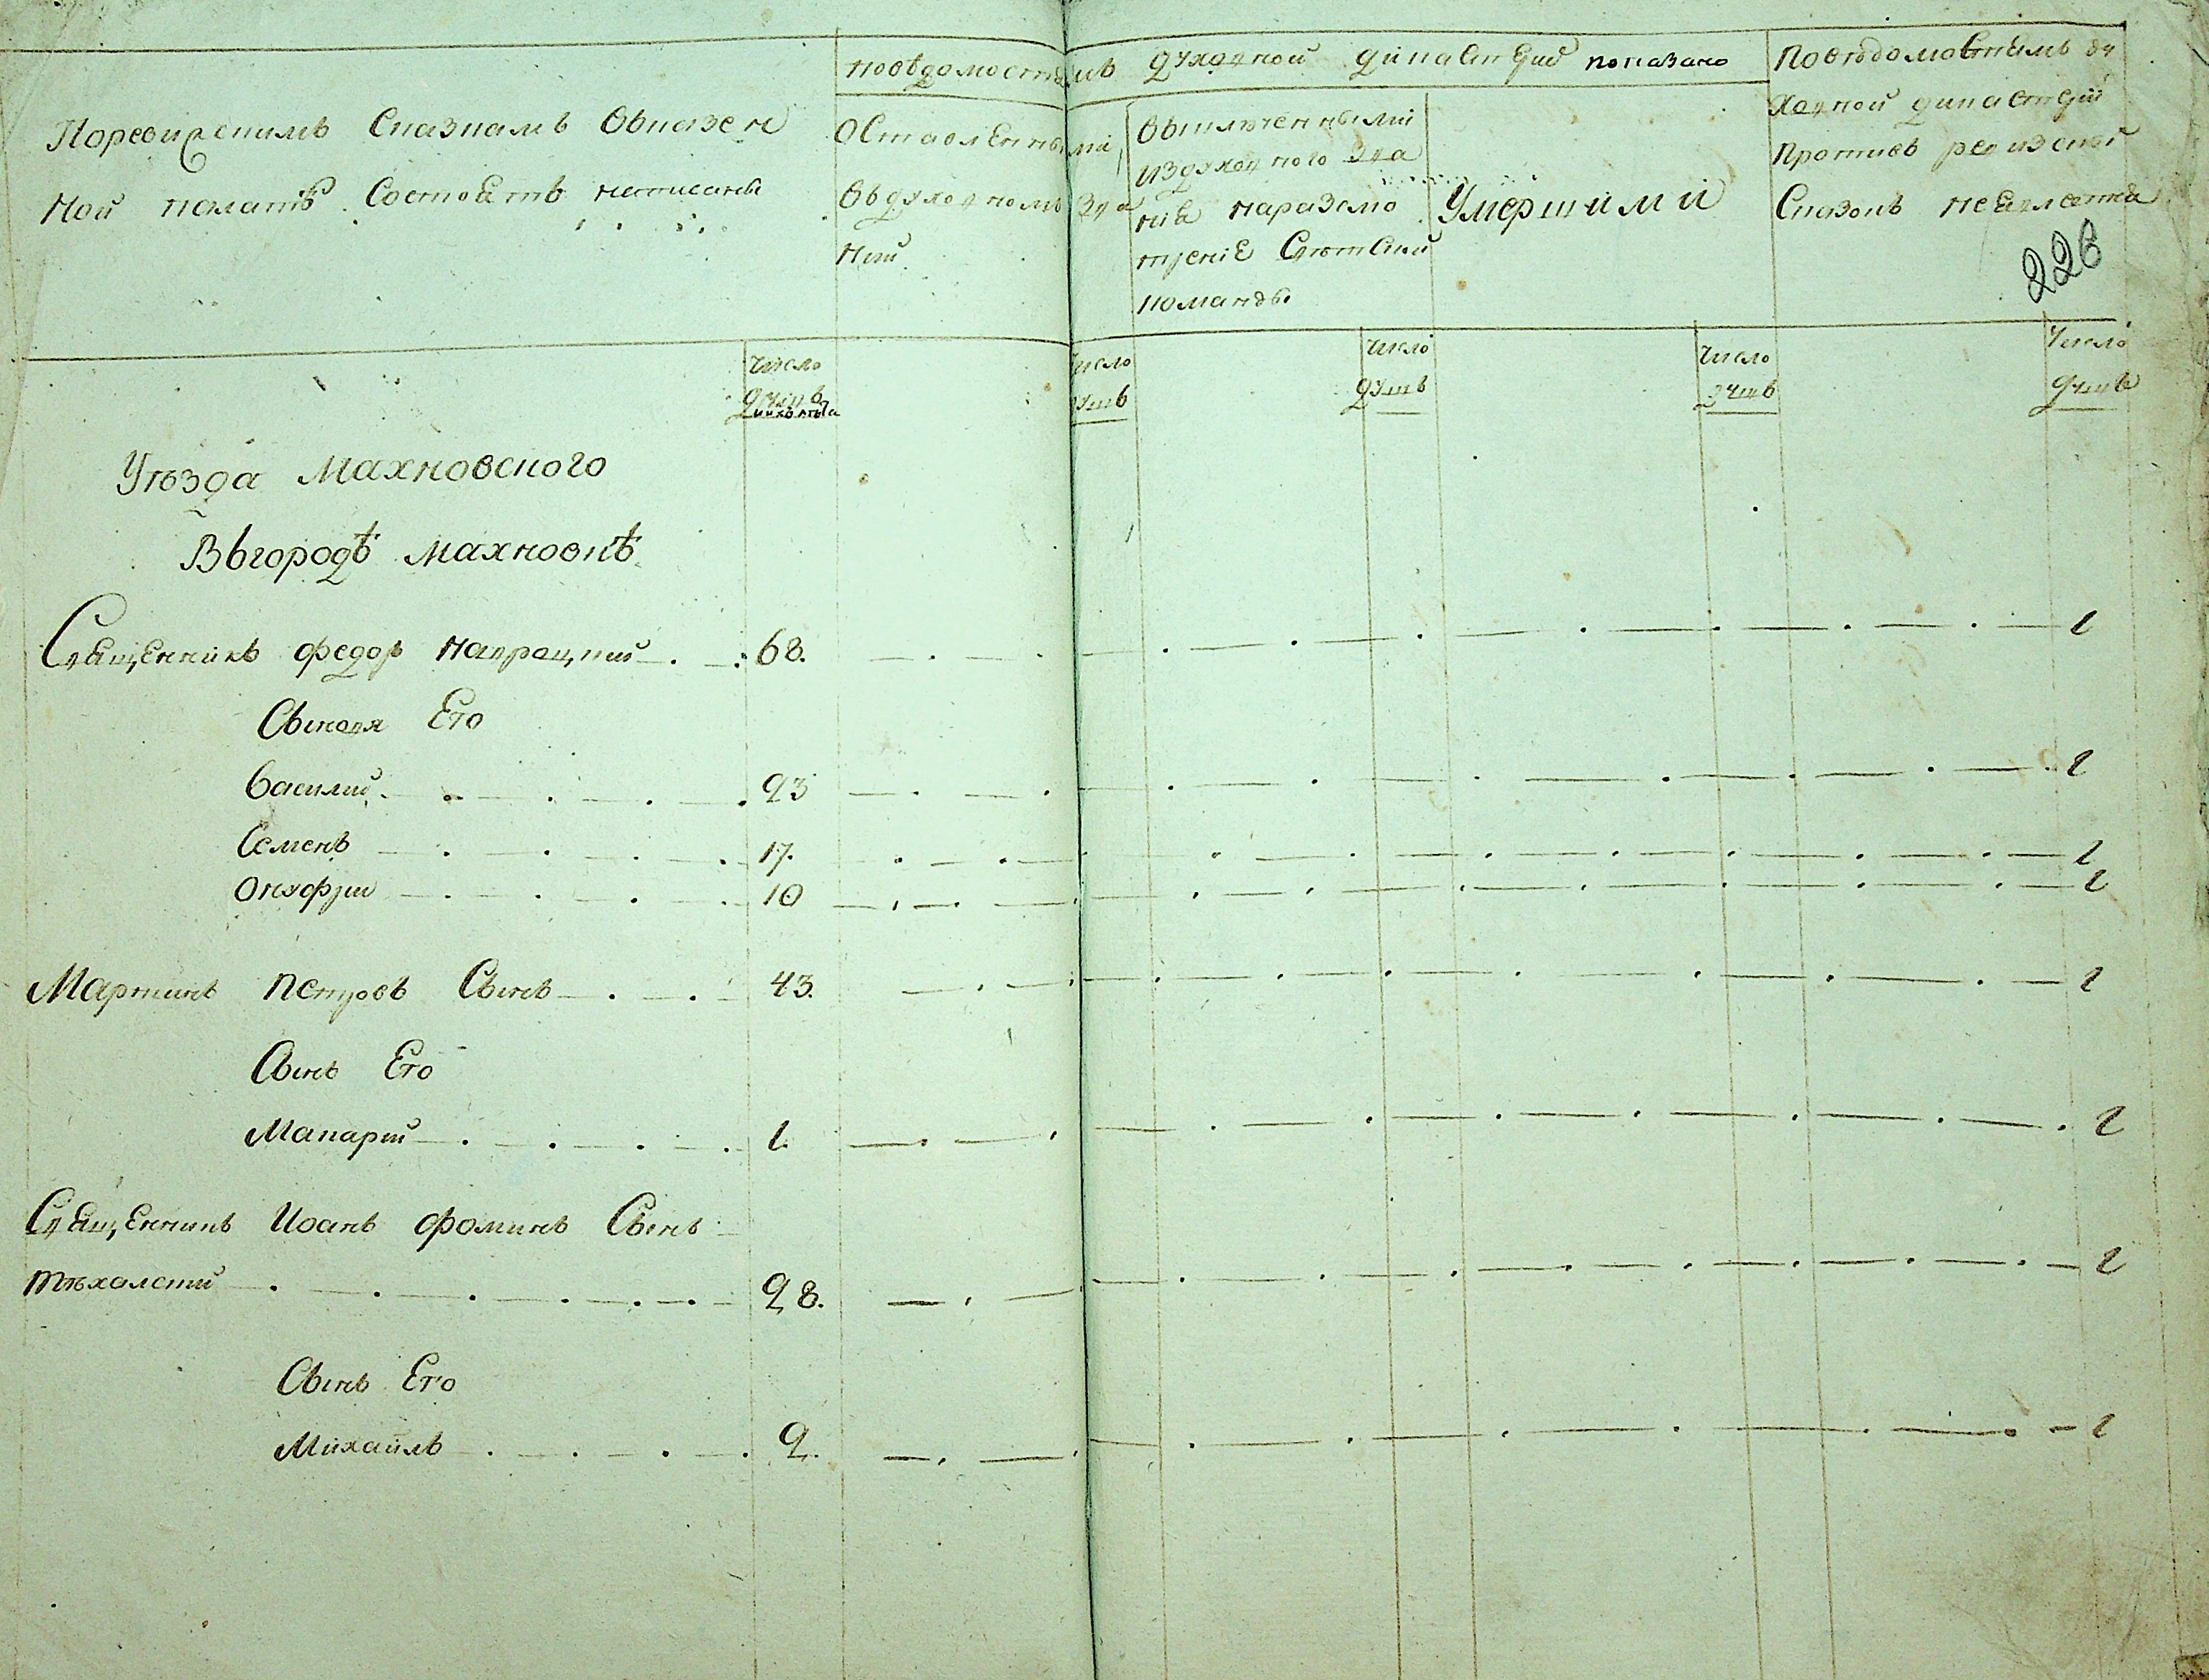 Поревизскимъ Сказкамъ Вказен
Ной палатѣ Состоитъ написаны
поведомостямъ духовной дикастерии показано
Оставленными
Въдуховномъ зва
Нии
Выключенными
издуховного зва
ние наразсмо
трение Светской
команды
Умершими
Поведомостямъ ду
ховной дикастерии
Противъ ревизских
Сказокъ неявленны
226
Число
душъ
иихъ лѣта
Число
душъ
Число
душъ
Число
душъ
Число
душъ
Уѣзда Махновского
Въгородѣ Махновкѣ
Священникъ федоръ 68. 1
Сыновя Его
Василий 23 1
Семенъ 17. 1
Онуфрии 10 1
Мартинъ Петровъ Сынъ 43. 1
Сынъ Его
Макарий 1. 1
Священникъ Иоанъ фоминъ Сынъ
28. 1
Сынъ Его
Михаилъ 2. 1